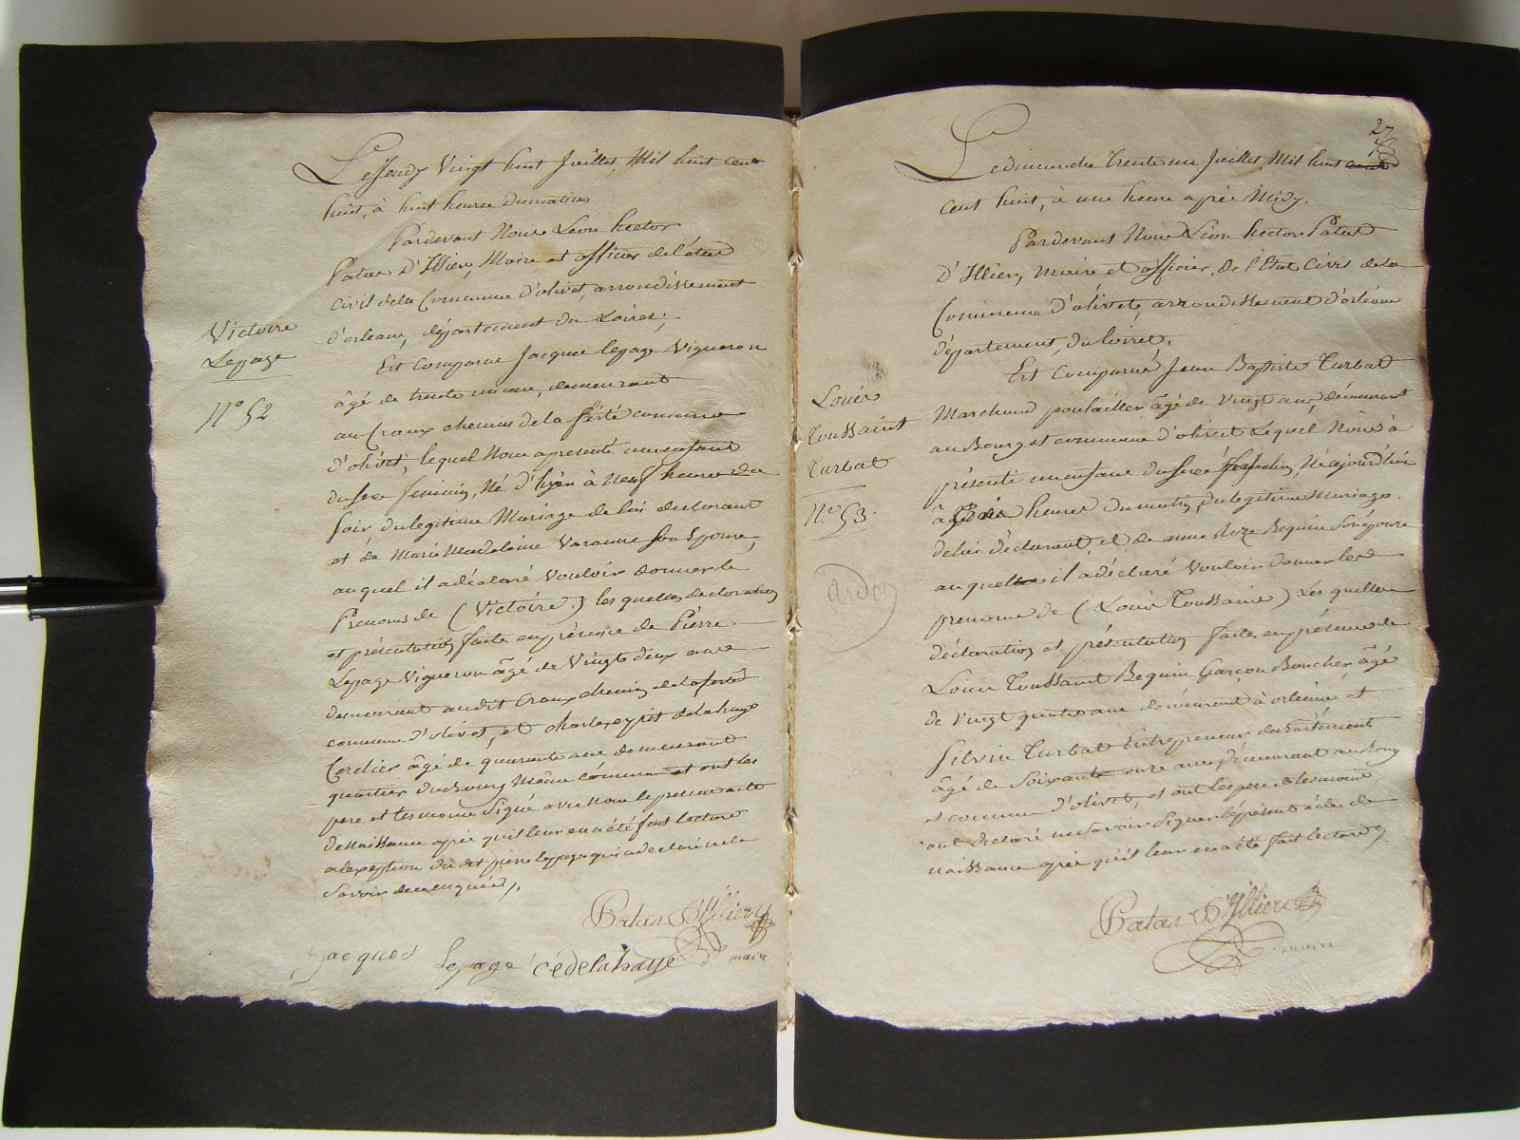 Victoire
Lepage
N° 52
Le Jeudy Vingt huit Juillet, Mil huit cent
huit, à huit heures du matin
Pardevant Nous Leon hector
Patas D'Illiers, Maire et officier de l'état
Civil de la Commune d'olivet, arrondissement
d'orleans, département du Loiret;
Est comparu Jacque lepage Vigneron
âgé de trente ans, demeurant
au Creux chemin de la ferté commune
d'olivet, lequel Nous a presenté un enfant
du sexe feminin, Né d'hyer à Neuf heures du
soir du legitime Mariage de lui declarant
et de Marie Madelaine Varanne son Epouse,
auquel il a déclaré Vouloir donner le
Prenom de (Victoire.) les quelles declaration
et présentation faite en présence de Pierre
Lepage Vigneron âgé de Vingt deux ans
demeurant audit Creux chemin de la ferté
commune d'olivet, et charles esprit delahaye
Cordier âgé de quarante ans demeurant
quartier du Bourg Même commune et ont les
pere et temoins Signé avec Nous le present acte
de Naissance après qu'il leur en a été fait lecture
a l'exception du dit pierre lepage qui a declaré ne le
Savoir de ce enquis,.
Patas D'Illiers
maire
Jacques lepage c e delahaye
27
Louis
Toussaint
Turbat
N° 53.
ardon
Le dimanche trente un Juillet, Mil huit
cent huit, à une heure après Midy.
Pardevant Nous Léon hector Patas
D'Illiers, maire et officier, de l'Etat Civil de la
Commune d'olivet, arrondissement d'orléans
département, du loiret.
Est Comparu Jean Baptiste Turbat
Marchand poulailler âgé de vingt ans, demeurant
au Bourg et commune d'olivet Lequel Nous à
présenté un enfant du sexe Masculin, Né aujourd'hui
à heures du matin, du legitime Mariage
de lui déclarant, et de Beguin Son épouse
auquel il a déclaré Vouloir donner les
prenoms de (Louis Toussaint) Les quelles
déclaration et présentation faites en présence de
Louis Toussaint Beguin Garçon Boucher, âgé
de vingt quatre ans demeurant à orléans, et
Silvin Turbat Entrepreneur de Batiment
âgé de Soixante onze ans demeurant au bourg
et commune d'olivet, et ont les pere et temoins
ont declaré ne Savoir Signer le présent acte de
naissance après qu'il leur en a été fait lecture
Patas D'Illiers
maire